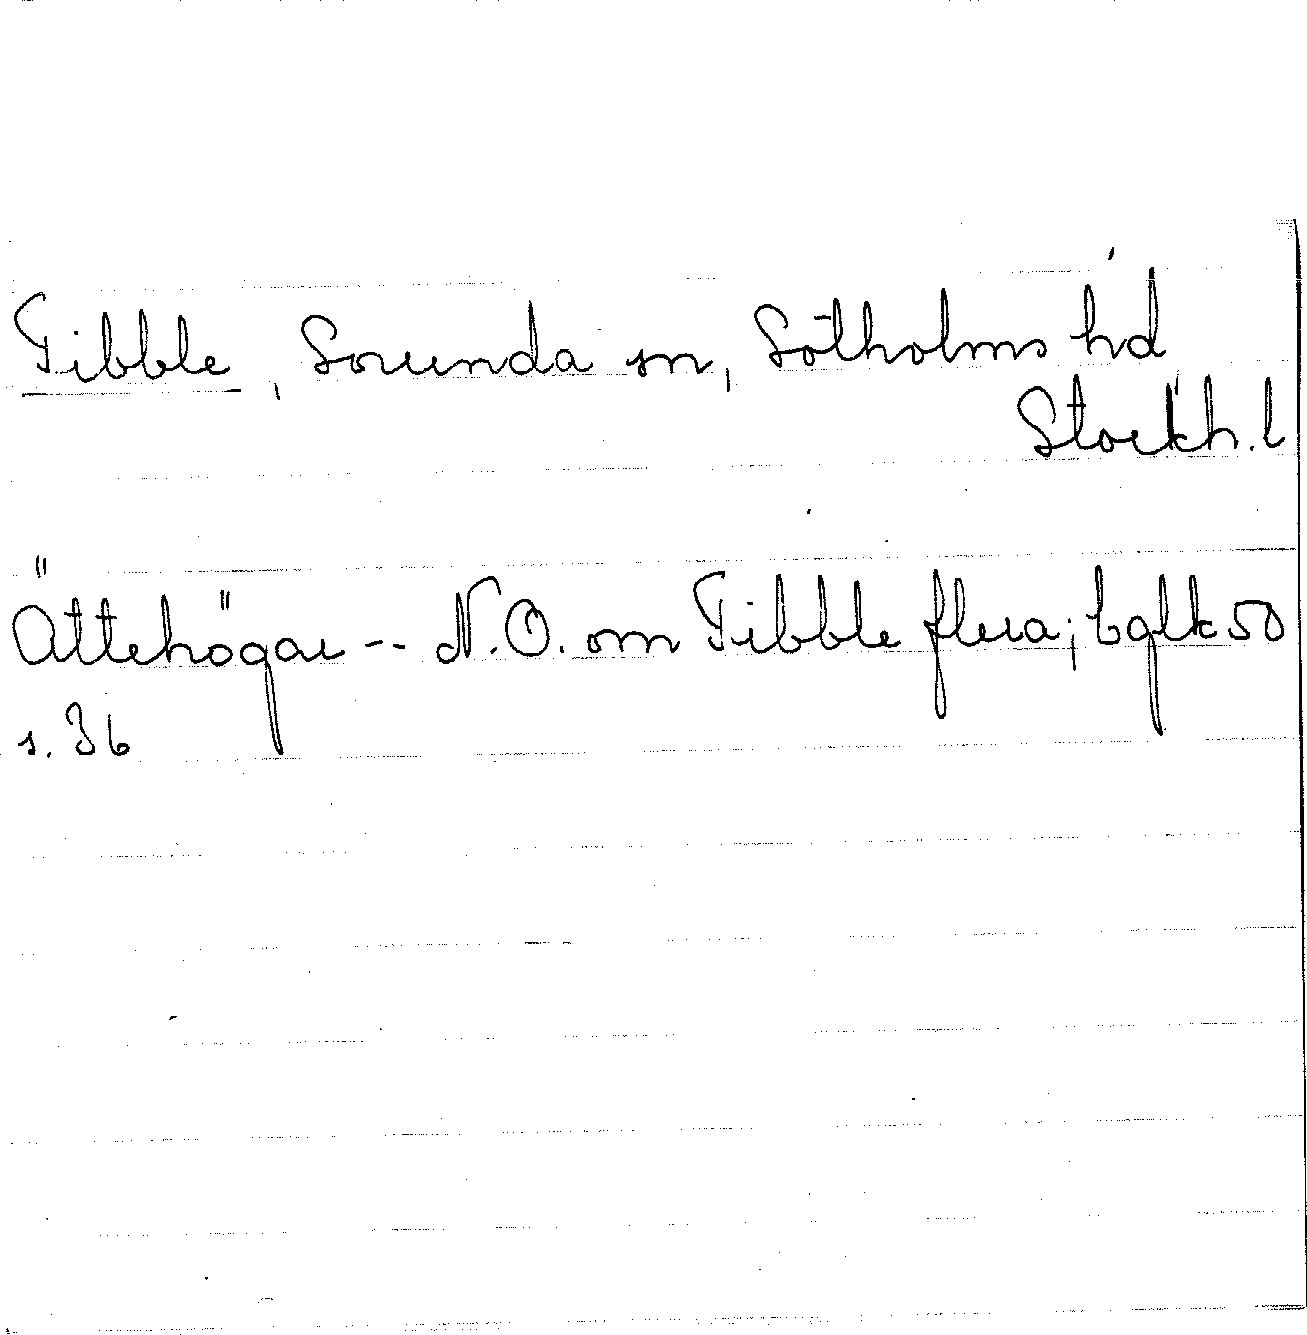 Tibble, Sorunda sn, Sötholms hd
Stockh. l
Ättehögar -- N.O. om Tibble flera; bglk 50
s. 36